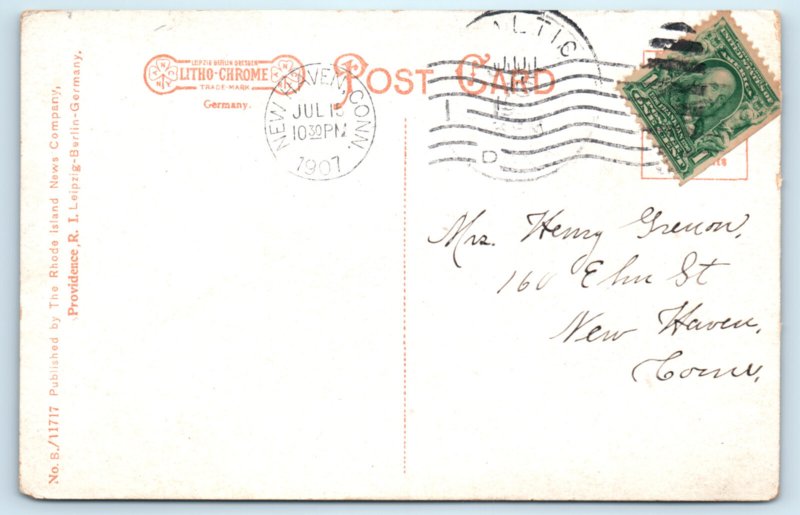 LEIPZIG BERLIN DRESDEN
LITHO-CHROME
TRADE-MARK
Germany.
POST CARD
NEW HAVEN, CONN.
JUL 15
10 30 PM
1907
LTIC
1
D
Mrs. Henry Grenon,
160 Elm St
New Haven,
Conn,
No. B./11717 Published by The Rhode Island News Company,
Providence, R. I. Leipzig-Berlin-Germany,